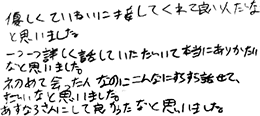 優しくていねいに接してくれて良い人だな
と思いました。
一つ一つ詳しく話していただいて本当にありがたい
なと思いました。
初めて会った人なのにこんなにすらすら話せて、
すごいなと思いました。
あすなろさんにして良かったなと思いました。